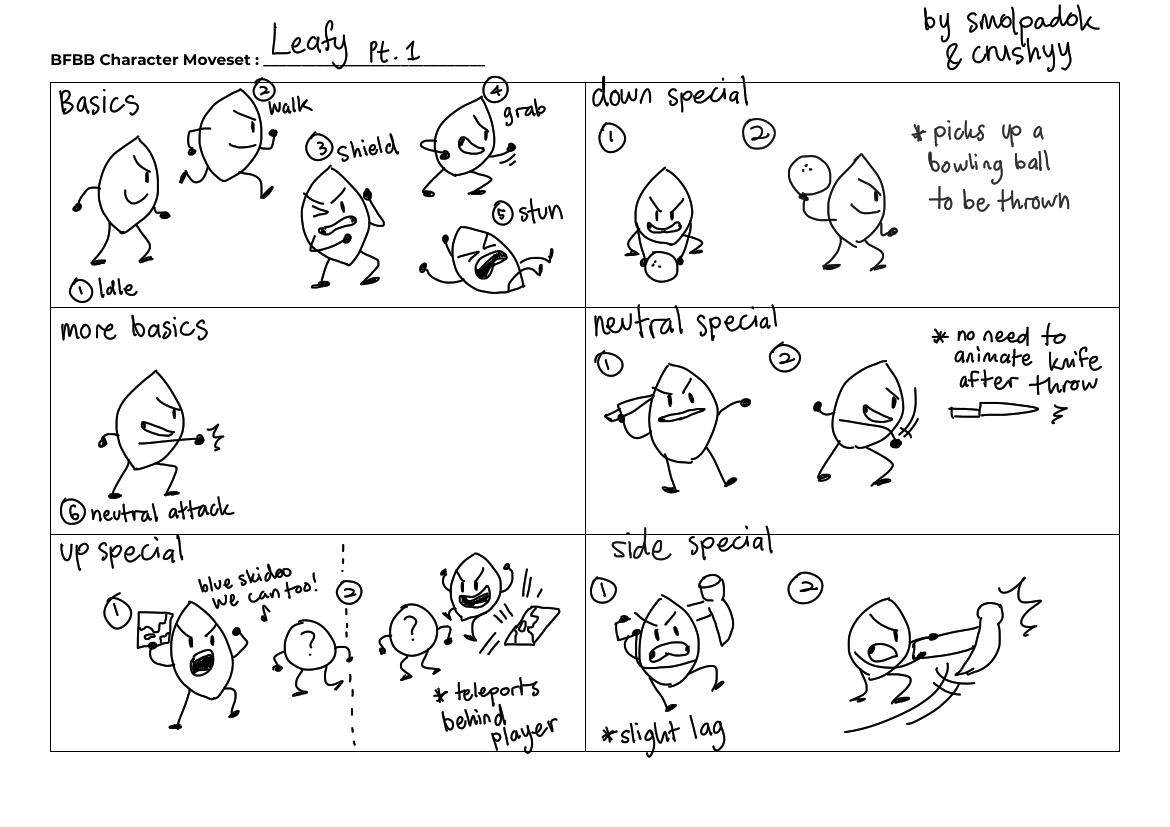 BFBB Character Moveset : Leafy Pt. 1
by smolpadok
& crushyy
Basics
① Idle
② walk
③ shield
④ grab
⑤ stun
down special
①
②
* picks up a
bowling ball
to be thrown
more basics
⑥ neutral attack
neutral special
①
②
* no need to
animate knife
after throw
up special
①
blue skidoo
we can too!
?
②
?
* teleports
behind
player
side special
①
②
* slight lag